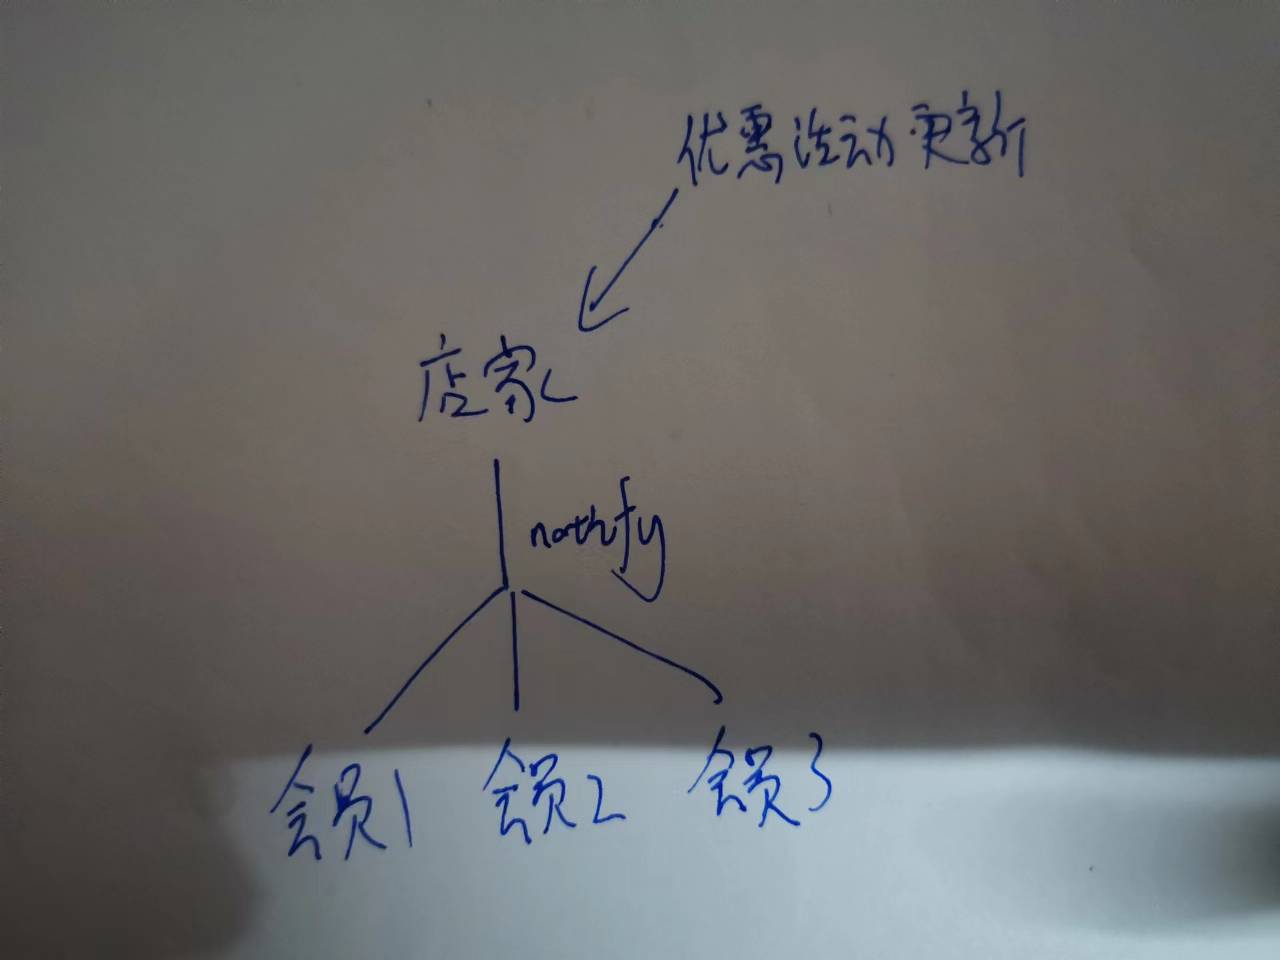 优惠活动更新
店家
notify
会员1 会员2 会员3